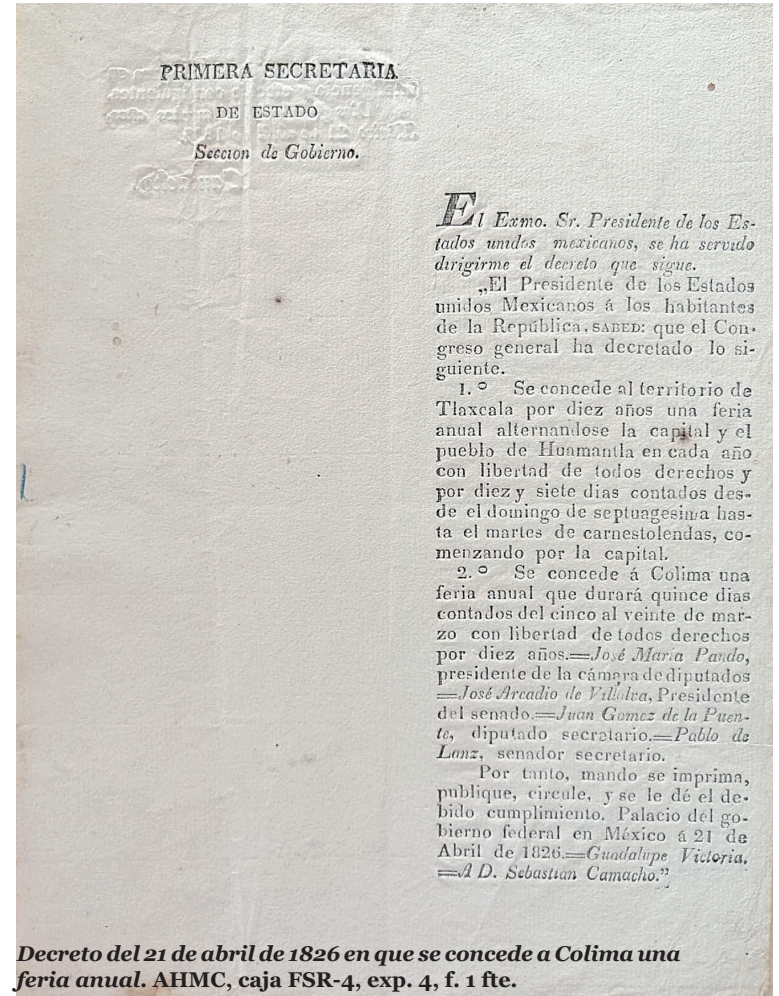 PRIMERA SECRETARIA
DE ESTADO
Seccion de Gobierno.
El Exmo. Sr. Presidente de los Es-
tados unidos mexicanos, se ha servido
dirigirme el decreto que sigue.
„El Presidente de los Estados
unidos Mexicanos á los habitantes
de la República, SABED: que el Con-
greso general ha decretado lo si-
guiente.
1.º Se concede al territorio de
Tlaxcala por diez años una feria
anual alternandose la capital y el
pueblo de Huamantla en cada año
con libertad de todos derechos y
por diez y siete dias contados des-
de el domingo de septuagesima has-
ta el martes de carnestolendas, co-
menzando por la capital.
2.º Se concede á Colima una
feria anual que durará quince dias
contados del cinco al veinte de mar-
zo con libertad de todos derechos
por diez años.=José Maria Pando,
presidente de la cámara de diputados
=José Arcadio de Villalva, Presidente
del senado.=Juan Gomez de la Puen-
te, diputado secretario.=Pablo de
Lanz, senador secretario.
Por tanto, mando se imprima,
publique, circule, y se le dé el de-
bido cumplimiento. Palacio del go-
bierno federal en México á 21 de
Abril de 1826.=Guadalupe Victoria.
=A D. Sebastian Camacho.”
Decreto del 21 de abril de 1826 en que se concede a Colima una
feria anual. AHMC, caja FSR-4, exp. 4, f. 1 fte.